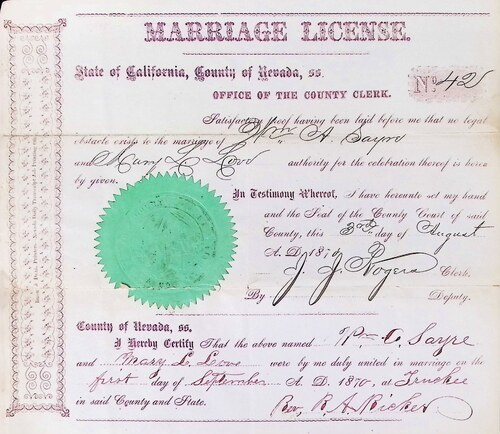 MARRIAGE LICENSE.
State of California, County of Nevada, ss.
No 42
OFFICE OF THE COUNTY CLERK.
Satisfactory proof having been laid before me that no legal
obstacle exists to the marriage of Wm A. Sayre
and Mary L. authority for the celebration thereof is hereby
by given.
In Testimony Whereof, I have hereunto set my hand
and the Seal of the County Court of said
County, this 3rd day of August
A. D. 1870
J. J. Rogers Clerk.
By Deputy.
County of Nevada, ss.
I Hereby Certify That the above named Wm A. Sayre
and Mary L. were by me duly united in marriage on the
first day of September A. D. 1870, at Truckee
in said County and State.
Rev. R. A. Ricker